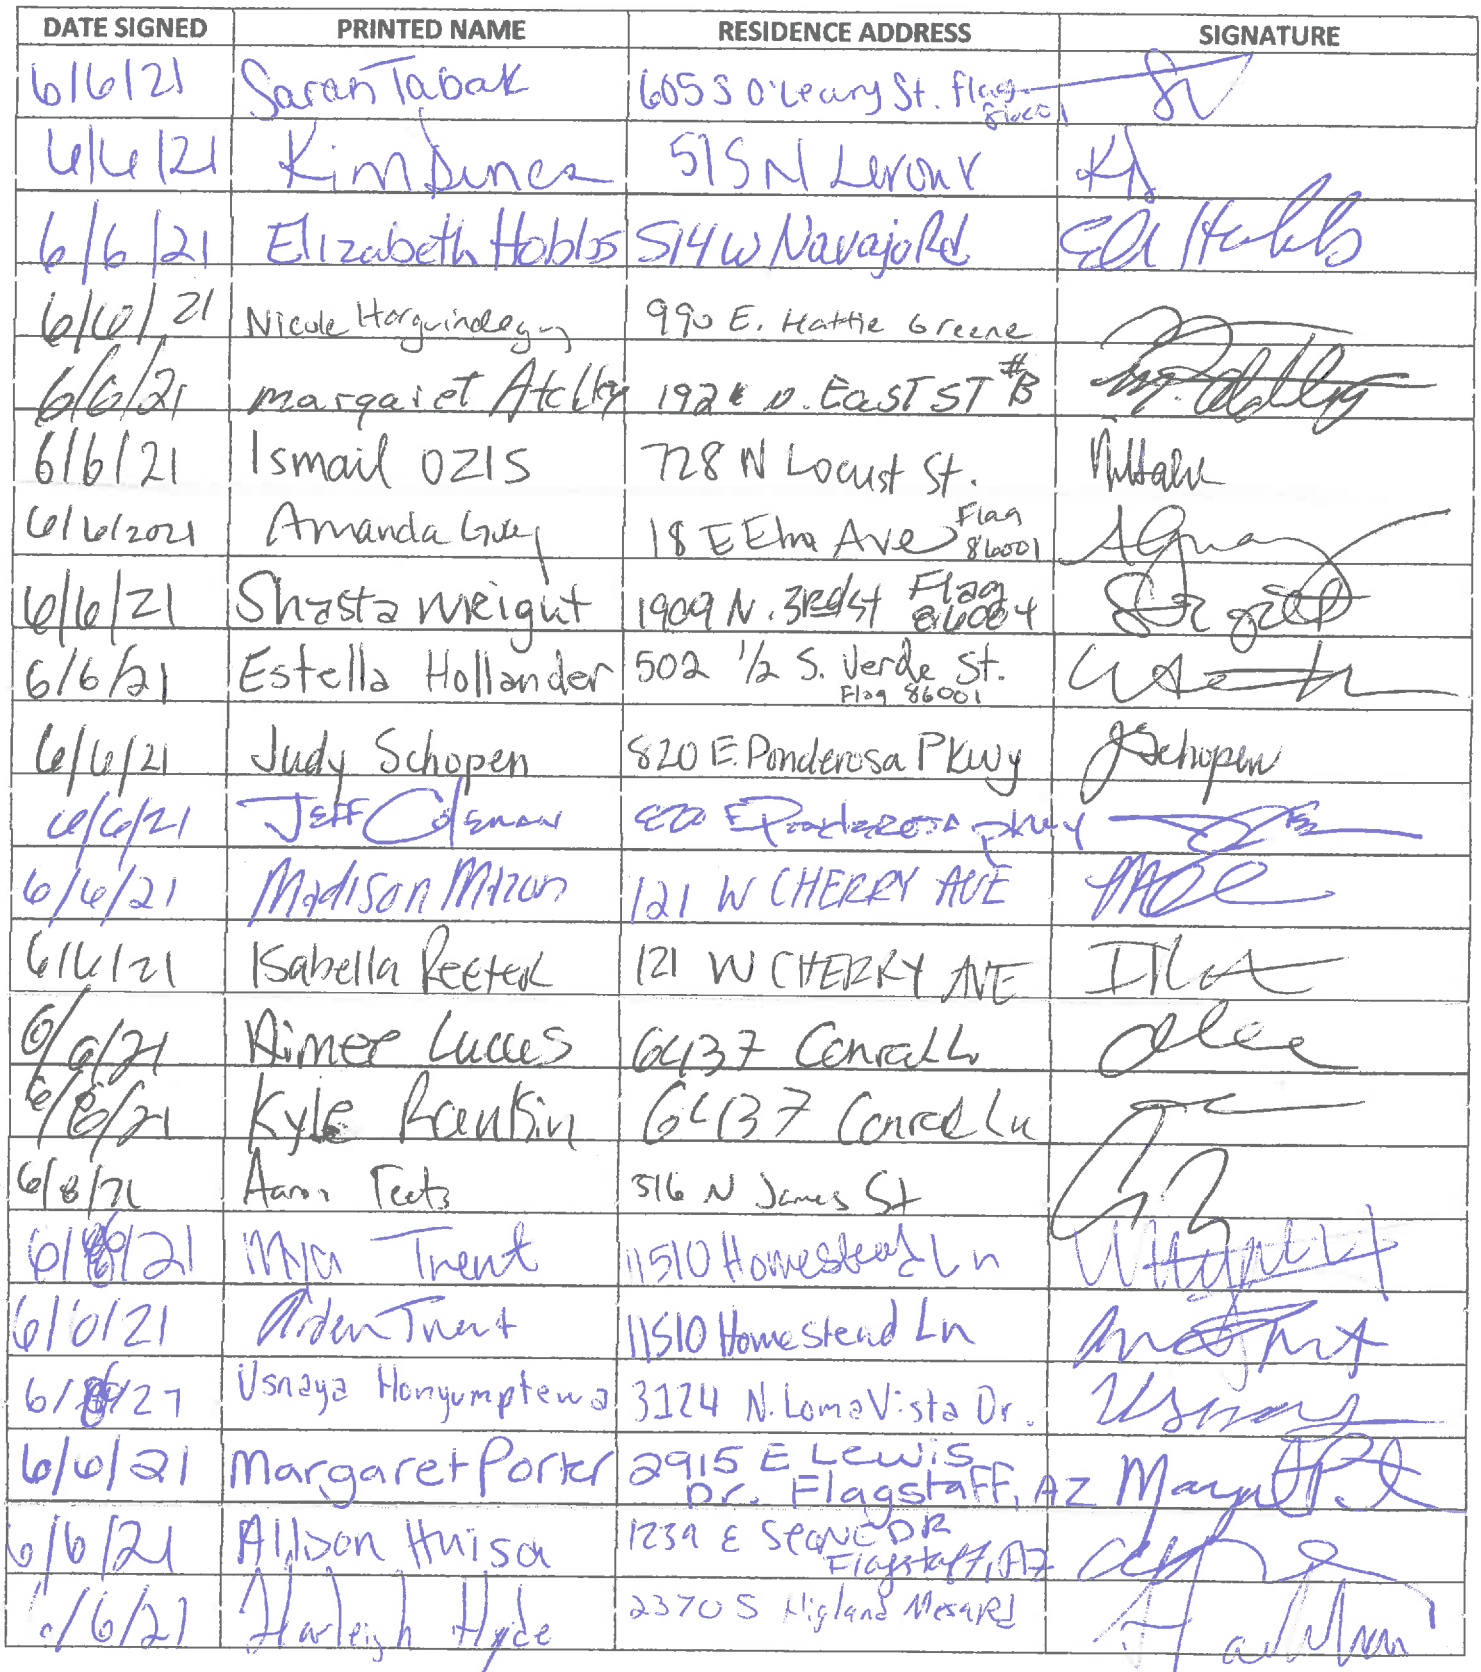 DATE SIGNED PRINTED NAME RESIDENCE ADDRESS SIGNATURE
6/6/21 Sarah Tabak 605 S O'Leary St. Flag 86001
6/6/21 Kim 515 N Leroux
6/6/21 Elizabeth Hobbs 514 W Navajo Rd Eli Hobbs
6/6/21 Nicole 990 E. Hattie Greene
6/6/21 margaret N. EAST ST #B
6/6/21 Ismail OZIS 728 N Locust St.
6/6/2021 Amanda 18 E Elm Ave Flag 86001
6/6/21 Shasta 1909 N. 3rd St Flag 86004
6/6/21 Estella Hollander 502 1/2 S. Verde St. Flag 86001
6/6/21 Judy Schopen 820 E. Ponderosa PKwy JSchopen
6/6/21 JEFF COLEMAN 820 E PONDEROSA PKWY
6/6/21 Madison 121 W CHERRY AVE
6/6/21 Isabella 121 W CHERRY AVE
6/6/21 Aimee Luccs 6437 Conrad Ln
6/6/21 Kyle Rankin 6437 Conrad Ln
6/8/21 Aaron Teets 516 N James St
Mya Trent 11510 Homestead Ln
Aiden Trent 11510 Homestead Ln
Honyumptewa 3124 N. Loma Vista Dr.
6/6/21 Margaret Porter 2915 E Lewis Dr. Flagstaff, AZ
6/6/21 Allison 1239 E Flagstaff, AZ
/6/21 Harleigh Hyde 2370 S Highland Mesa Rd